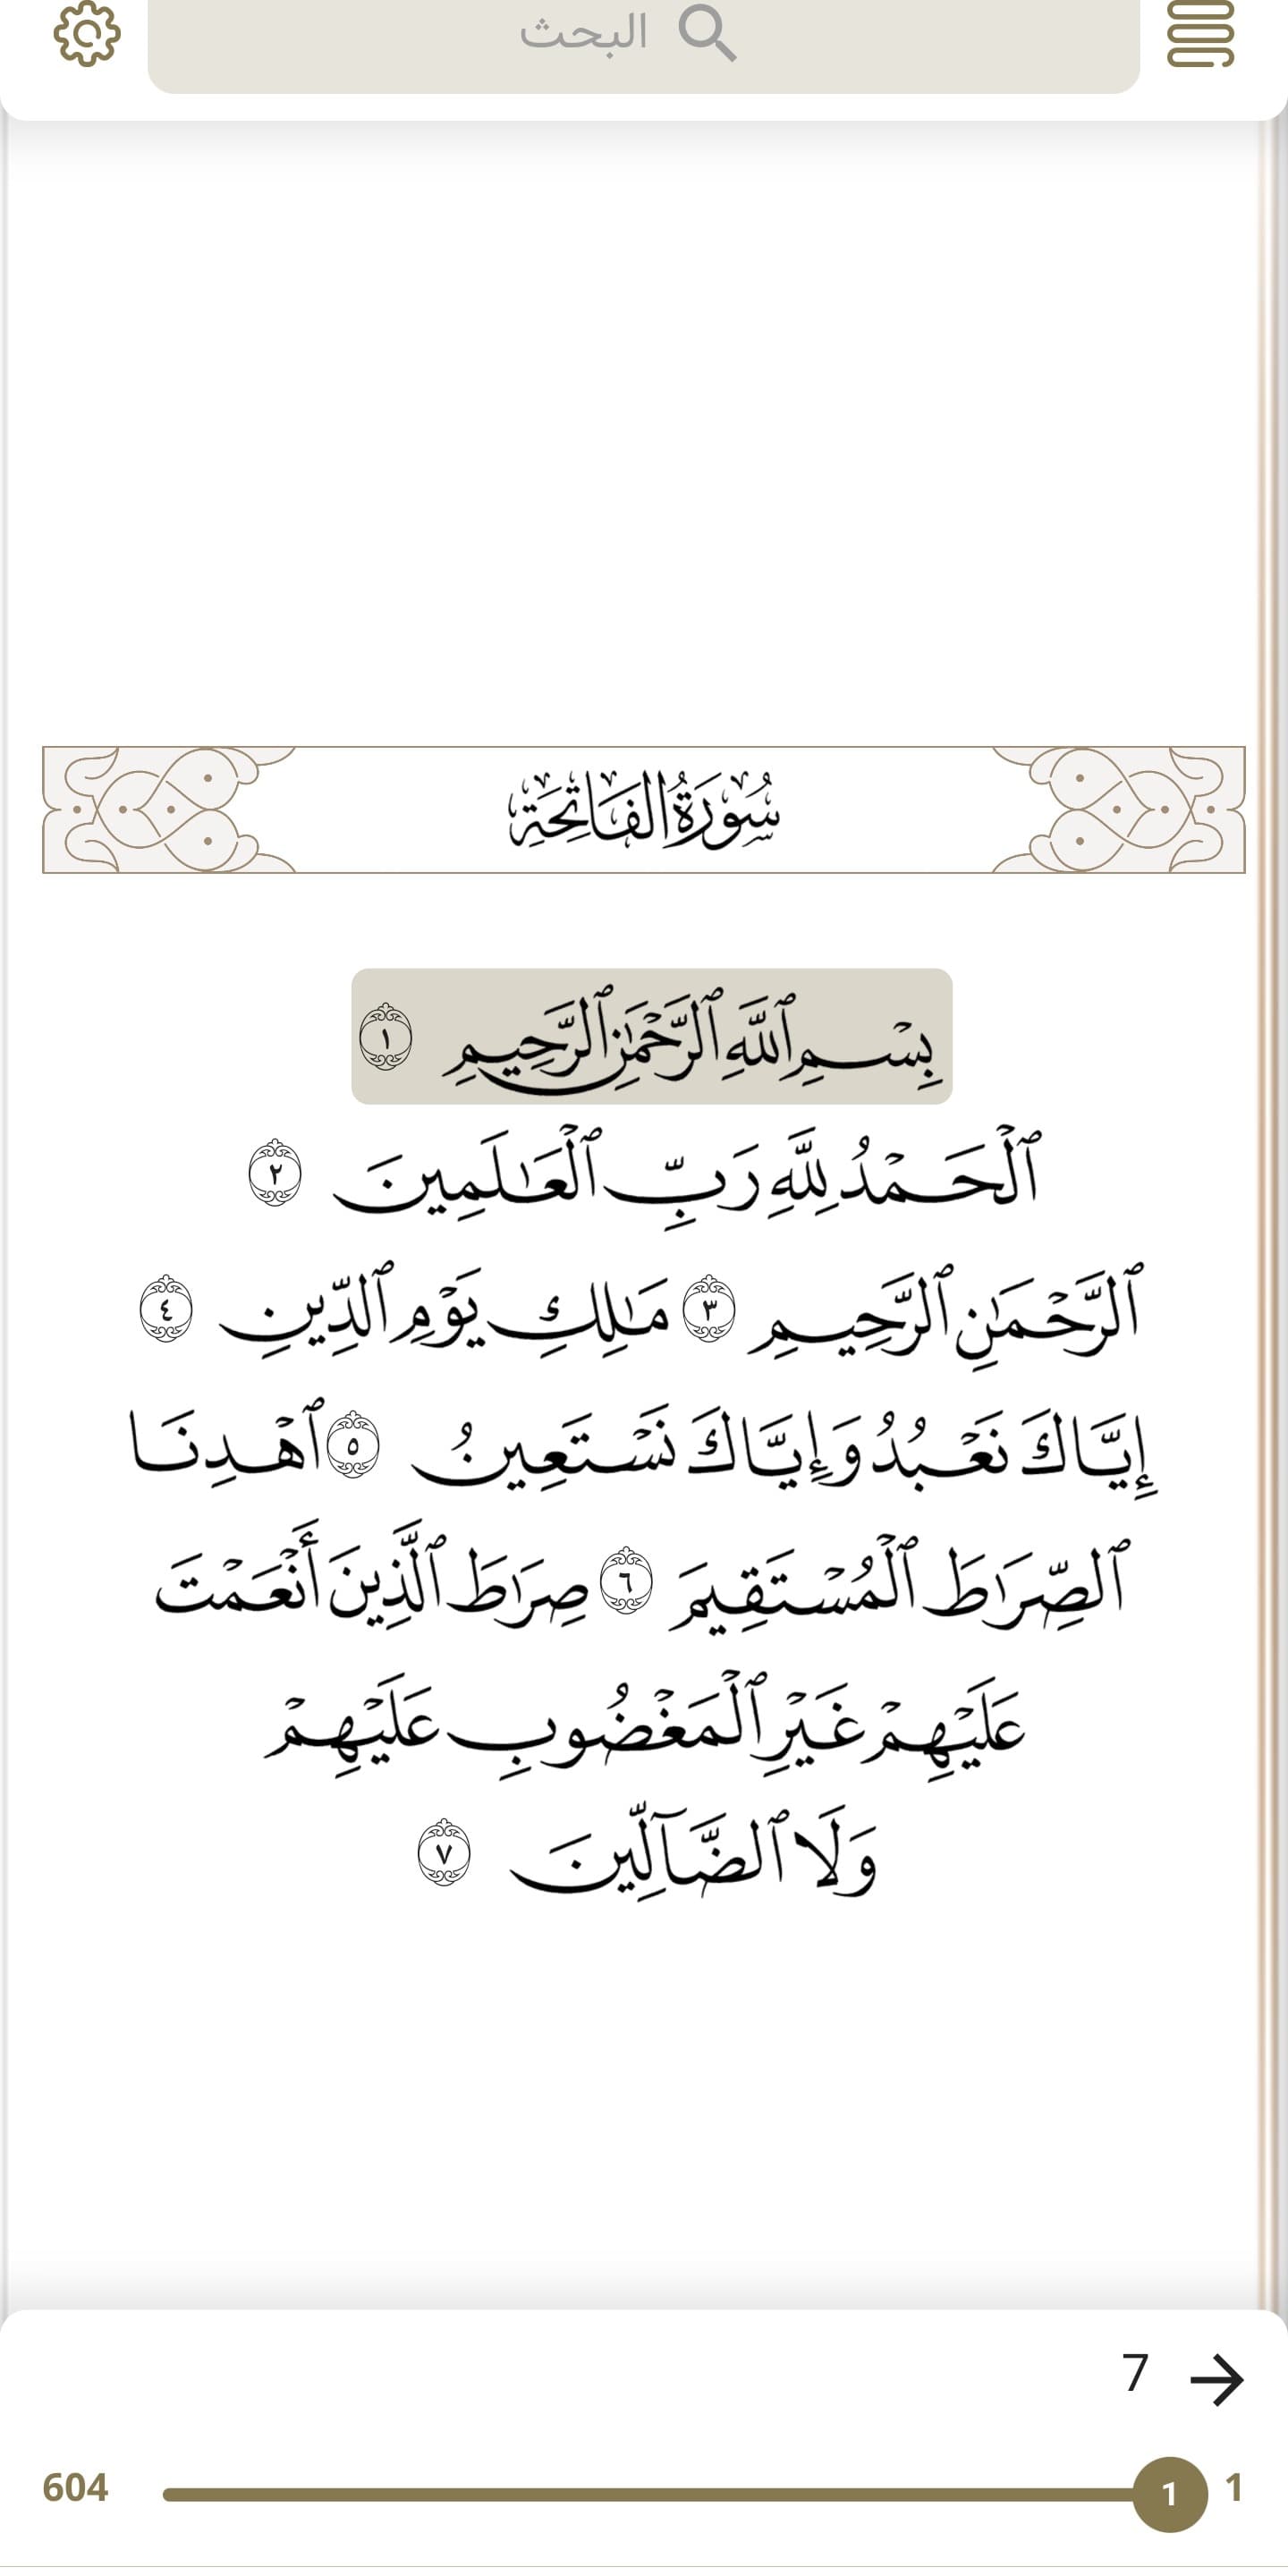 البحث
سُورَةُ الفَاتِحَةِ
بِسۡمِ ٱللَّهِ ٱلرَّحۡمَٰنِ ٱلرَّحِيمِ ١
ٱلۡحَمۡدُ لِلَّهِ رَبِّ ٱلۡعَٰلَمِينَ ٢
ٱلرَّحۡمَٰنِ ٱلرَّحِيمِ ٣ مَٰلِكِ يَوۡمِ ٱلدِّينِ ٤
إِيَّاكَ نَعۡبُدُ وَإِيَّاكَ نَسۡتَعِينُ ٥ ٱهۡدِنَا
ٱلصِّرَٰطَ ٱلۡمُسۡتَقِيمَ ٦ صِرَٰطَ ٱلَّذِينَ أَنۡعَمۡتَ
عَلَيۡهِمۡ غَيۡرِ ٱلۡمَغۡضُوبِ عَلَيۡهِمۡ
وَلَا ٱلضَّآلِّينَ ٧
7
1 1 604